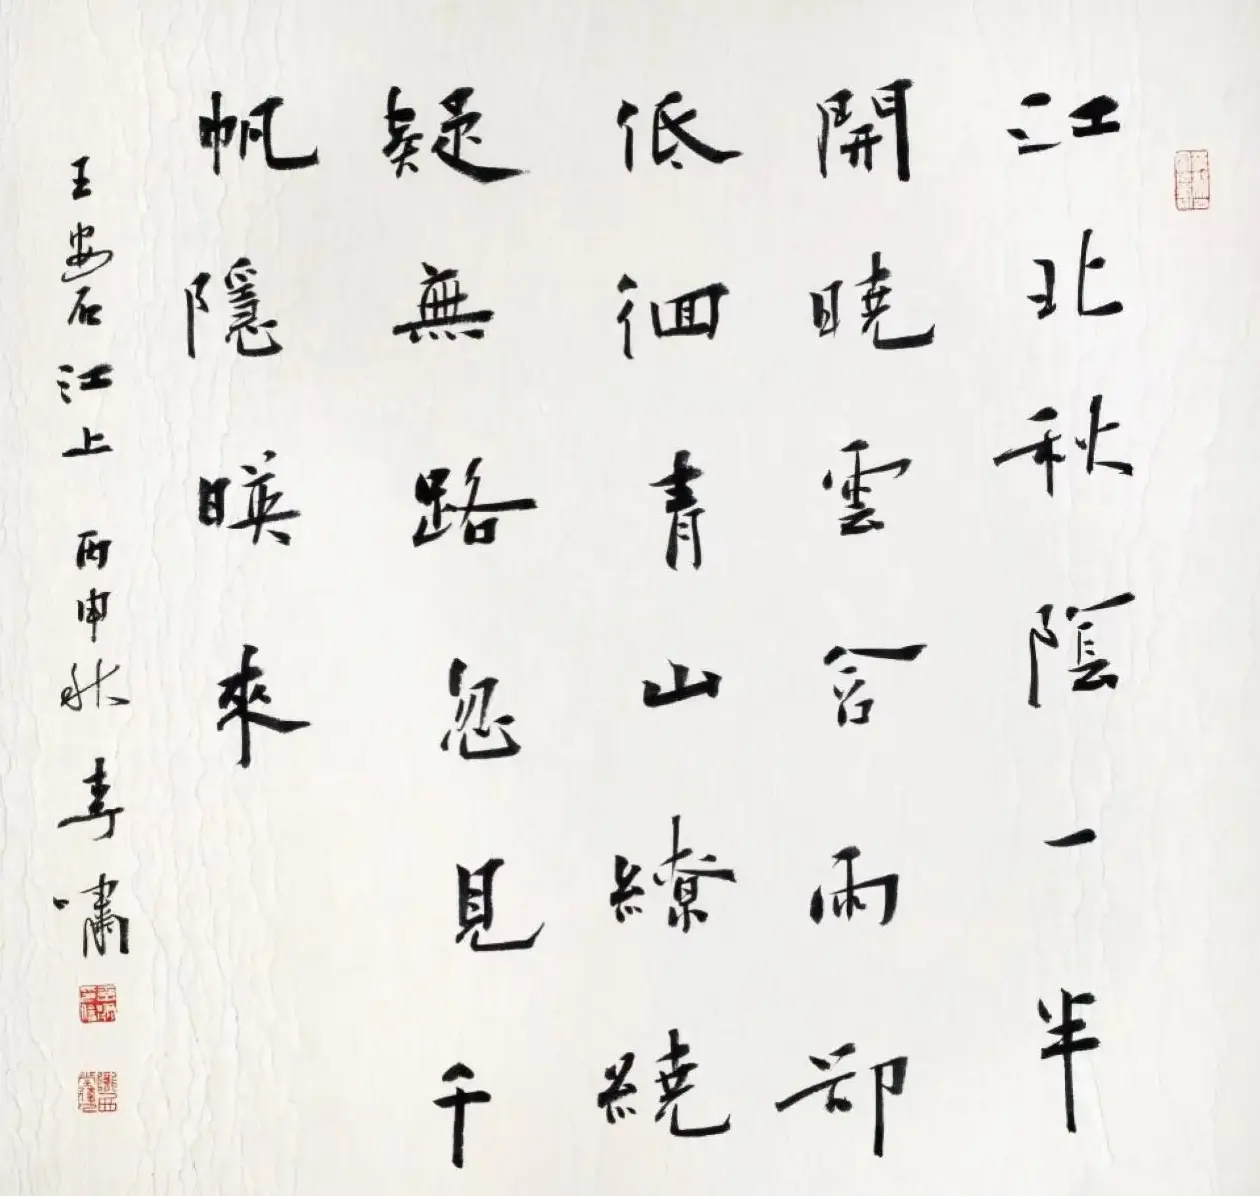 江北秋陰一半
開曉雲含雨却
低徊青山繚繞
疑無路忽見千
帆隱暎來
王安石江上 丙申秋 李嘯